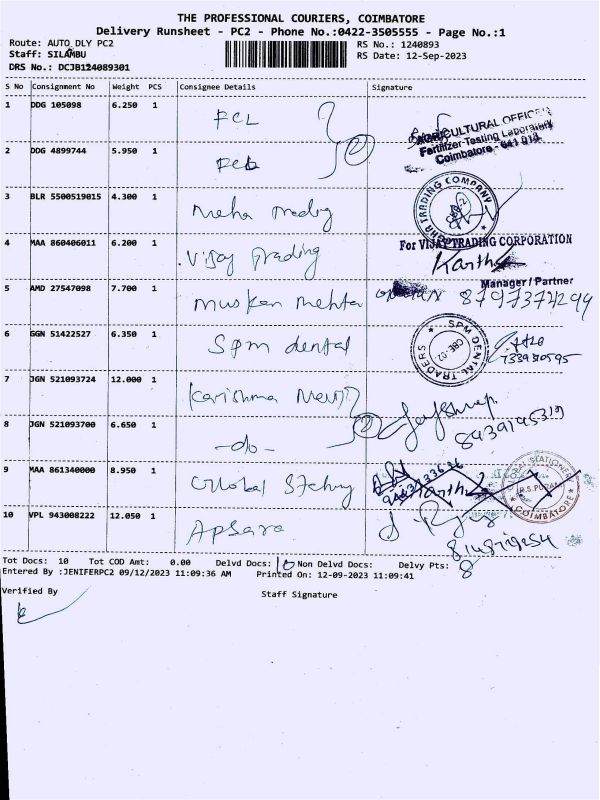 THE PROFESSIONAL COURIERS, COIMBATORE
Delivery Runsheet - PC2 - Phone No.:0422-3505555 - Page No.:1
Route: AUTO DLY PC2 RS No.: 1240893
Staff: SILAMBU RS Date: 12-Sep-2023
DRS No.: DCJB124089301
S No Consignment No Weight PCS Consignee Details Signature
1 DDG 105098 6.250 1 FCL
AGRICULTURAL OFFICER
Fertilizer Testing Laboratory
Coimbatore - 641 013
2 DDG 4899744 5.950 1 FCL
2
3 BLR 5500519015 4.300 1 Meha Trading
TRADING COMPANY
4 MAA 860406011 6.200 1 Vijay Trading
For VIJAY TRADING CORPORATION
Karthi
Manager / Partner
5 AMD 27547098 7.700 1 Muskan Mehta 8797374294
6 GGN 51422527 6.350 1 Spm dental
SPM DENTAL TRADERS
CBE-02
7339510595
7 JGN 521093724 12.000 1 Karishma
8 JGN 521093700 6.650 1 -do-
2
9 MAA 861340000 8.950 1 Global
R.S.PURAM
COIMBATORE
10 VPL 943008222 12.050 1 Apsara
Tot Docs: 10 Tot COD Amt: 0.00 Delvd Docs: 10 Non Delvd Docs: Delvy Pts: 8
Entered By :JENIFERPC2 09/12/2023 11:09:36 AM Printed On: 12-09-2023 11:09:41
Verified By Staff Signature